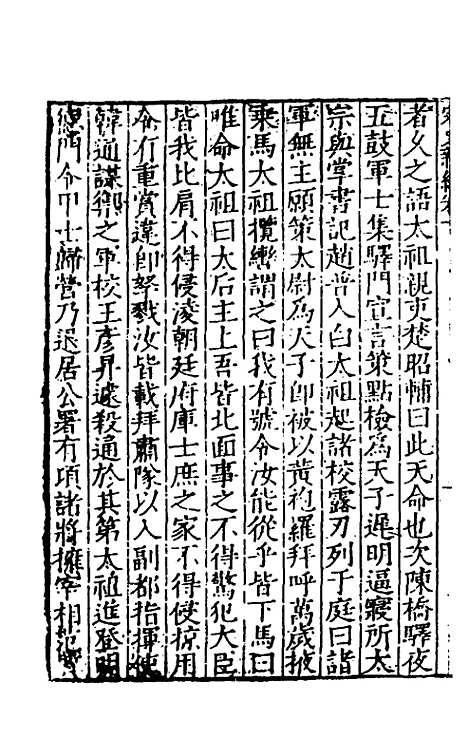 者久之語太祖親吏楚昭輔曰此天命也次陳橋驛夜
五鼓軍士集驛門宣言策點檢爲天子遲明逼寢所太
宗與掌書記趙普入白太祖起諸校露刃列于庭曰諸
軍無主願策太尉爲天子即被以黃袍羅拜呼萬歲掖
乘馬太祖攬轡謂之曰我有號令汝能從乎皆下馬曰
唯命太祖曰太后主上吾皆北面事之不得驚犯大臣
皆我比肩不得侵淩朝廷府庫士庶之家不得侵掠用
令有重賞違即孥戮汝皆載拜肅隊以入副都指揮使
韓通謀禦之軍校王彥昇遽殺通於其第太祖進登明
德門令甲士歸營乃退居公署有頃諸將擁宰相范質